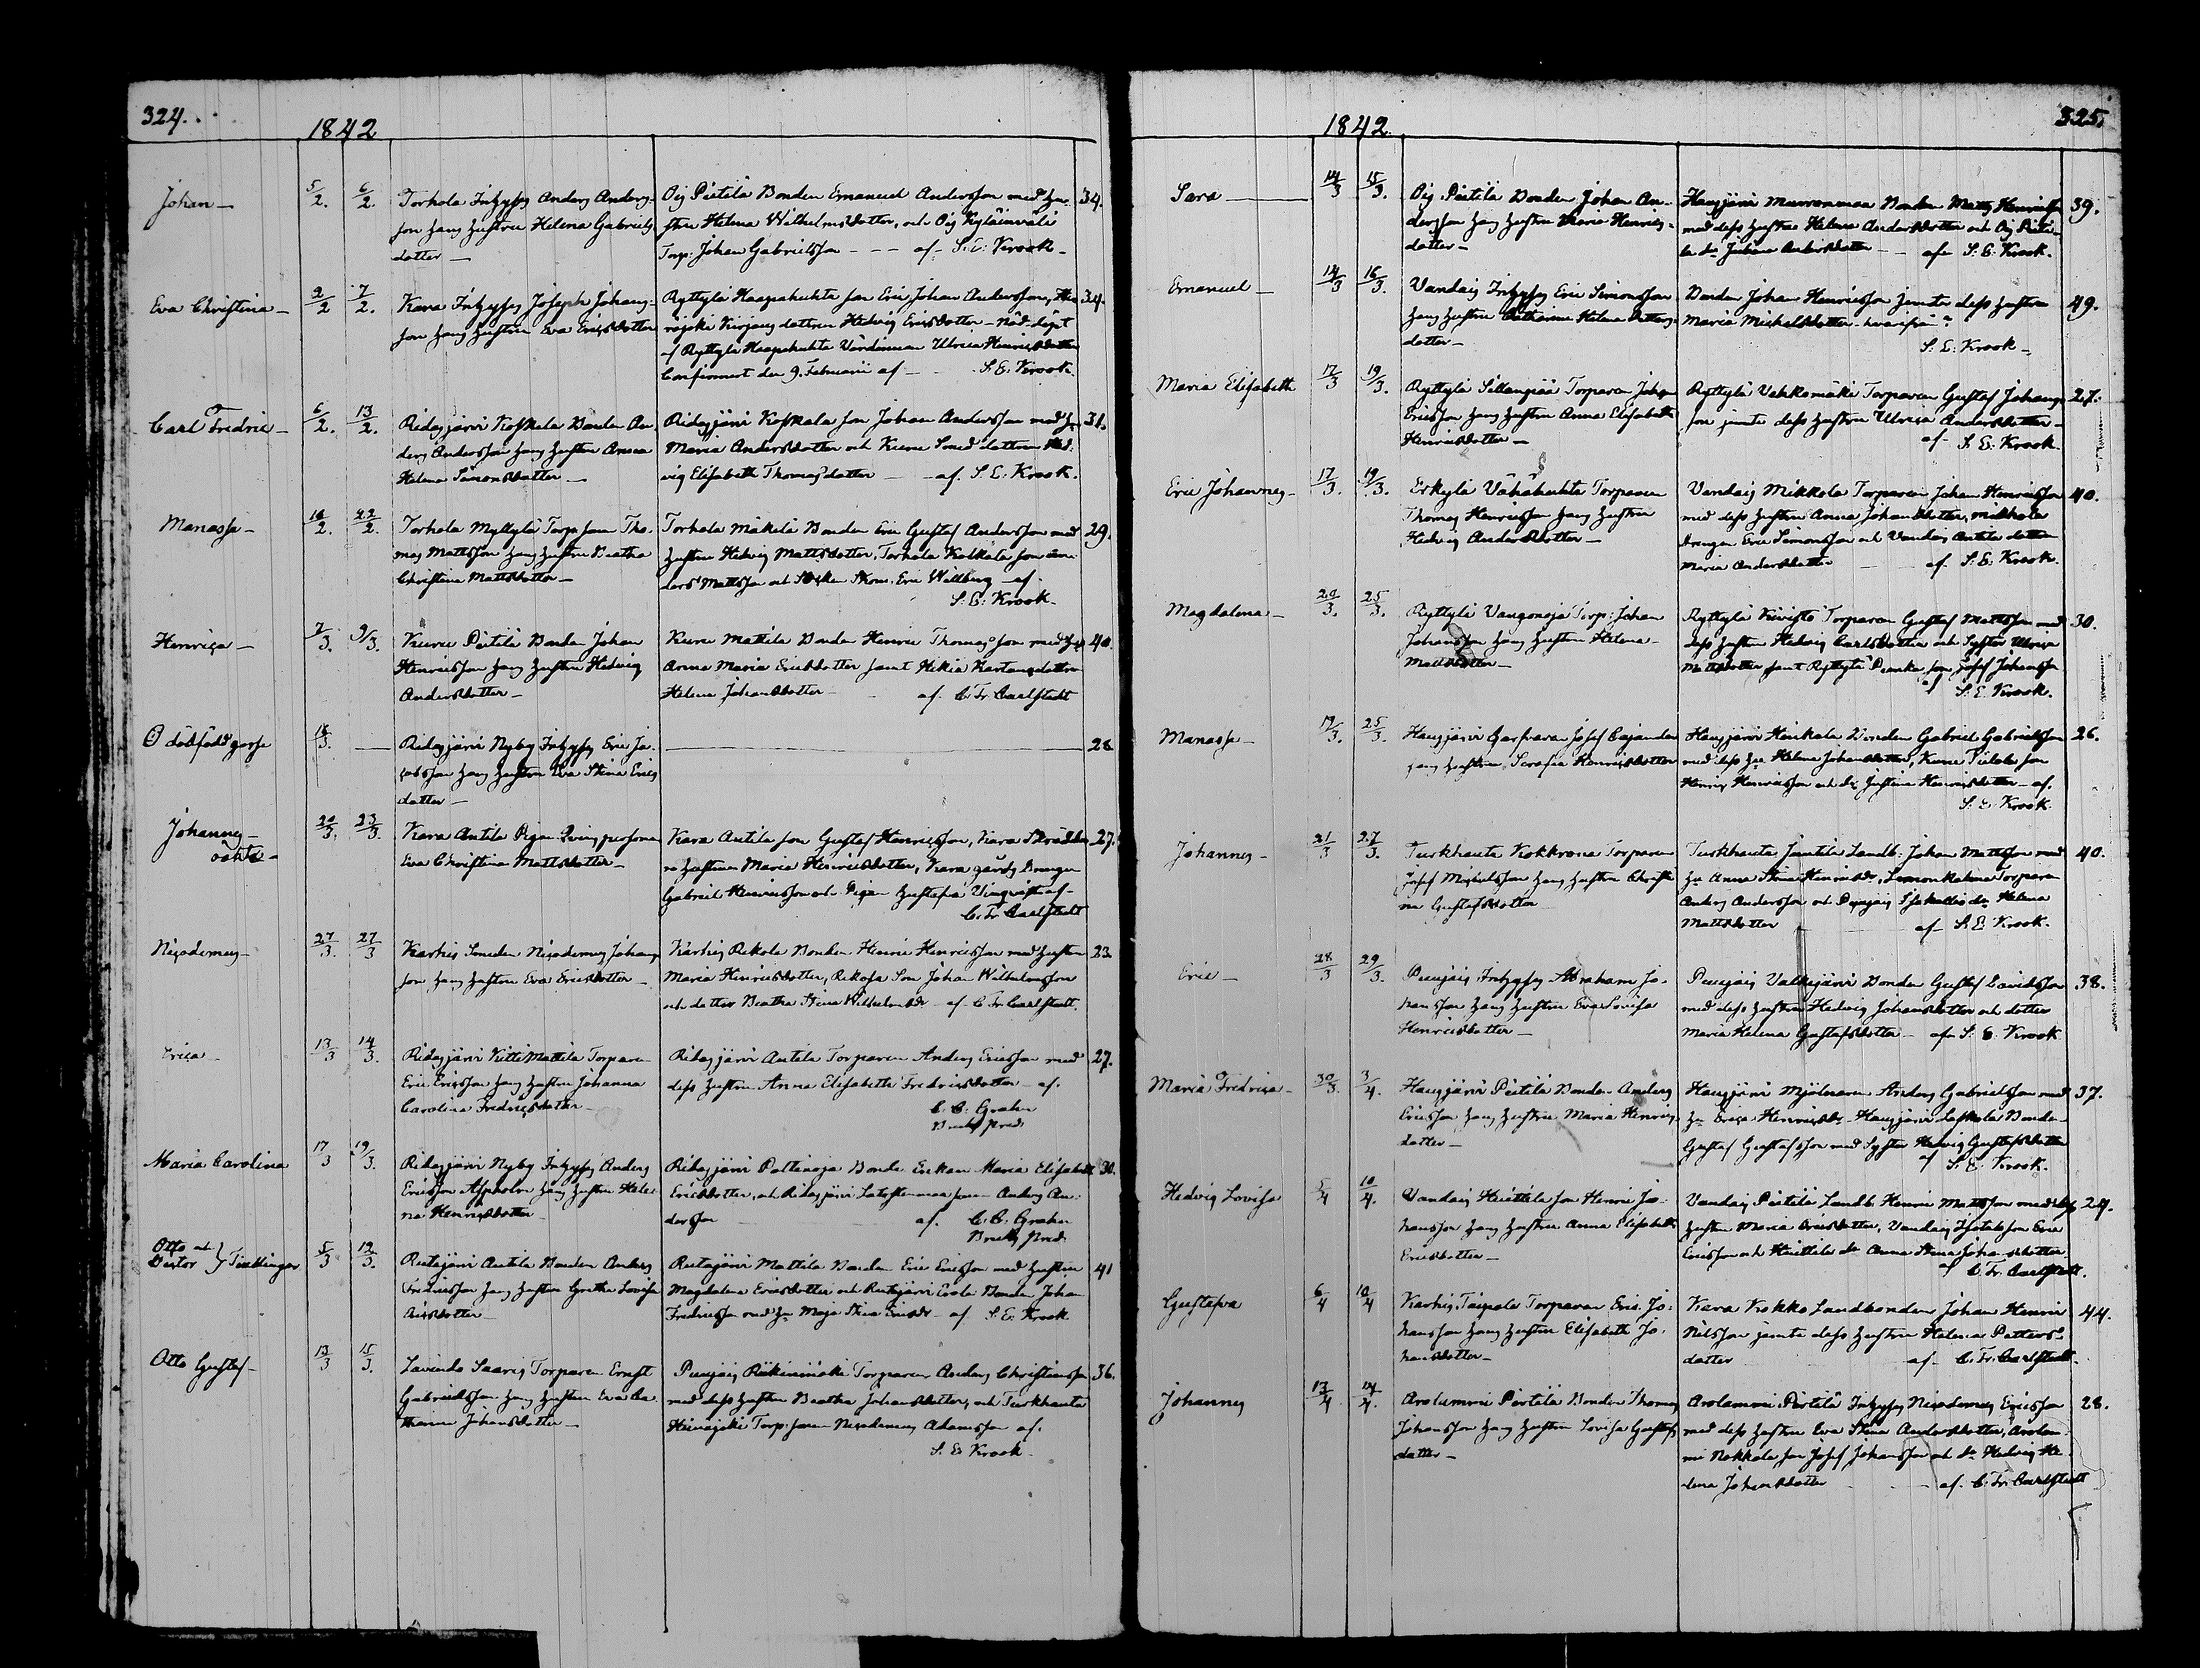 324.
1842
Johan —
5/2. 6/2
Torhola Inhyses Anders Anders-
son hans hustru Helena Gabriels
dotter —
Oig Pietilä Bonden Emanuel Andersson med hu-
stru Helena Wilhelmsdotter, och Oig Kyläinväli
Torp: Johan Gabrielsson - - - af S. E. Krook
34.
Eva Christina —
2/2 7/2.
Kara Inhyses Joseph Johans-
son hans hustru Eva Ericsdotter
Ryttylä Haapahuhta son Eric Johan Andersson,
dottren Hedvig Ericsdotter — Nöd-döpt
af Ryttylä Haapahuhta Värdinnan Ulrica Henricsdotter
Confirmert den 9. Februarii af — S. E. Krook.
34.
Carl Fredric —
6/2. 13/2.
Ridasjärvi Koskela Bonden An-
ders Andersson hans hustru Anna
Helena Simonsdotter —
Ridasjärvi Koskela son Johan Andersson med
Maria Andersdotter och Kuru Smed dottren Hed-
vig Elisabeth Thomasdotter — af S. E. Krook.
31.
Manasse —
16/2. 22/2.
Torhola Myllylä Torp: son Tho-
mas Mattsson hans hustru Beatha
Christina Mattsdotter —
Torhola Mäkelä Bonden Eric Gustaf Andersson med
hustru Hedvig Mattsdotter, Torhola Kolkkala son An-
ders Mattsson och Skom. Eric Willberg — af
S. E. Krook
29.
Henrica —
7/3. 9/3.
Kuru Pietilä Bonden Johan
Henricsson hans hustru Hedvig
Andersdotter —
Kuru Mattila Bonden Henric Thomasson med
Anna Maria Ericsdotter samt Hikiä dottren
Helena Johansdotter — af C. Fr. Carlstedt
40.
dödfödd gosse
16/3. —
Ridasjärvi Nyby Inhyses Eric Ja-
cobsson hans hustru Eva Stina Erics
dotter —
28
Johannes —
oäkta —
20/3. 23/3.
Kara Antila Pigan Qvinspersonen
Eva Christina Mattsdotter —
Kara Antila son Gustaf Henricsson, Kara Skräddare
hustrun Maria Henricsdotter, Kara gårds Drengen
Gabriel Henricsson och Pigan Gustafva af
C. Fr. Carlstedt
27.
Nicodemus —
27/3. 27/3
Karhis Smeden Nicodemus Johans
son hans hustru Eva Ericsdotter —
Karhis Rekola Bonden Henric Henricsson med hustru
Maria Henricsdotter, Son Johan Wilhelmsson
och dotter Beatha Stina Wilhelmsdr — af C. Fr. Carlstedt.
23
Erica —
13/3 14/3.
Ridasjärvi Mattila Torparen
Eric Ericsson hans hustru Johanna
Carolina Fredricsdotter —
Ridasjärvi Antila Torparen Anders Ericsson med
dess hustru Anna Elisabeth Fredricsdotter — af
C. C. Grahn
Bruks pred:
27.
Maria Carolina
17/3 19/3.
Ridasjärvi Nyby Inhyses Anders
Ericsson Aspholm hans hustru Hele-
na Henricsdotter
Ridasjärvi Paltinoja Bonde Enkan Maria Elisabeth
Ericsdotter, och Ridasjärvi son Anders An-
dersson af. C. C. Grahn
Bruks pred.
30.
Otto och
Victor } Tvillingar
5/3 12/3.
Rutajärvi Antila Bonden Anders
Fredricsson hans hustru Gretha Lovisa
Ericsdotter —
Rutajärvi Mattila Bonden Eric Ericsson med hustru
Magdalena Ericsdotter och Rutajärvi Eerola Bonden Johan
Fredricsson med hu Maja Stina Ericsdr — af S. E. Krook
41
Otto Gustaf —
13/3 15/3.
Torparen Ernst
Gabrielsson hans hustru Eva Ca-
tharina Johansdotter —
Puujais Riikinmäki Torparen Anders Christiansson
med dess hustru Beatha Johansdotter, och Turkhauta
Torp: son Nicodemus Adamsson af.
S. E. Krook
36.
1842.
325.
Sara —
14/3 15/3.
Oig Pietilä Bonden Johan An-
dersson hans hustru Maria Henrics-
dotter —
Hausjärvi Murronmaa Bonden Matts Henricsson
med dess hustru Helena Andersdotter och Oig Pieti-
lä dr Andersdotter — af S. E. Krook.
39.
Emanuel —
14/3 16/3.
Vandais Inhyses Eric Simonsson
hans hustru Catharina Helena
dotter —
Bonden Johan Henricsson jemte dess hustru
Maria Michelsdotter
S. E. Krook —
49.
Maria Elisabeth
17/3 19/3.
Ryttylä Sillanpää Torparen Johan
Ericsson hans hustru Anna Elisabeth
Henricsdotter —
Ryttylä Vehkomäki Torparen Gustaf Johans-
son jemte dess hustru Ulrica Andersdotter —
af S. E. Krook
27.
Eric Johannes —
17/3. 19/3.
Erkylä Vähähuhta Torparen
Thomas Henricsson hans hustru
Hedvig Andersdotter —
Vandais Mikkola Torparen Johan Henricsson
med dess hustru Anna Johansdotter, Mikkola
drengen Eric Simonsson och Vandais Antila dotter
Maria Andersdotter — af S. E. Krook.
40.
Magdalena —
20/3. 25/3.
Ryttylä Vangonoja Torp: Johan
Johansson hans hustru Helena
Mattsdotter —
Ryttylä Kivistö Torparen Gustaf Mattsson med
dess hustru Hedvig Carlsdotter och Syster Ulrica
Mattsdotter samt Ryttylä son Josef Johansson
af S. E. Krook.
30.
Manasse —
19/3. 25/3.
Hausjärvi Garfvaren Josef Cajander
hans hustru Serafia Henricsdotter
Hausjärvi Heikkala Bonden Gabriel Gabrielsson
med dess hu Helena Johansdotter, Kuru Pietilä son
Henric Henricsson och dr Justina Henricsdotter — af.
S. E. Krook
26.
Johannes —
21/3 27/3.
Turkhauta Kokkronen Torparen
Josef Michelsson hans hustru Christi-
na Gustafsdotter
Turkhauta Landb: Johan Mattsson med
hu Anna Stina Henricsdr, Torparen
Anders Andersson och Puujais dr Helena
Mattsdotter af S. E. Krook.
40.
Eric —
28/3 29/3.
Puujais Inhyses Abraham Jo-
hansson hans hustru Eva Lovisa
Henricsdotter —
Puujais Valkijärvi Bonden Gustaf Davidsson
med dess hustru Hedvig Johansdotter och dotter
Maria Helena Gustafsdotter — af S. E. Krook
38.
Maria Fredrica —
30/3. 3/4.
Hausjärvi Pietilä Bonden Anders
Ericsson hans hustru Maria Henrics
dotter —
Hausjärvi Mjölnaren Anders Gabrielsson med
hu Erica Henricsdr. Hausjärvi Bonden
Gustaf Gustafsson med Syster Hedvig Gustafsdotter
af S. E. Krook.
37.
Hedvig Lovisa
5/4 10/4.
Vandais Heittilä son Henric Jo-
hansson hans hustru Anna Elisabeth
Ericsdotter —
Vandais Pietilä Landb: Henric Mattsson med dess
hustru Maria Ericsdotter, Vandais Isotalo son Eric
Ericsson och Heittilä dr Anna Stina Johansdotter
af C. Fr. Carlstedt.
29.
Gustafva
6/4 10/4
Karhis, Taipale Torparen Eric Jo-
hansson hans hustru Elisabeth Jo-
hansdotter —
Kara Kokko Landbonden Johan Henric
Nilsson jemte dess hustru Helena Petters-
dotter af C. Fr. Carlstedt.
44.
Johannes
13/4 14/4.
Arolammi Pietilä Bonden Thomas
Johansson hans hustru Lovisa Gustafs
dotter —
Arolammi Pietilä Inhyses Nicodemus Ericsson
med dess hustru Eva Stina Andersdotter, Arolam-
mi Nokkala son Josef Johansson och dr Hedvig He-
lena Johansdotter — af C. Fr. Carlstedt
28.